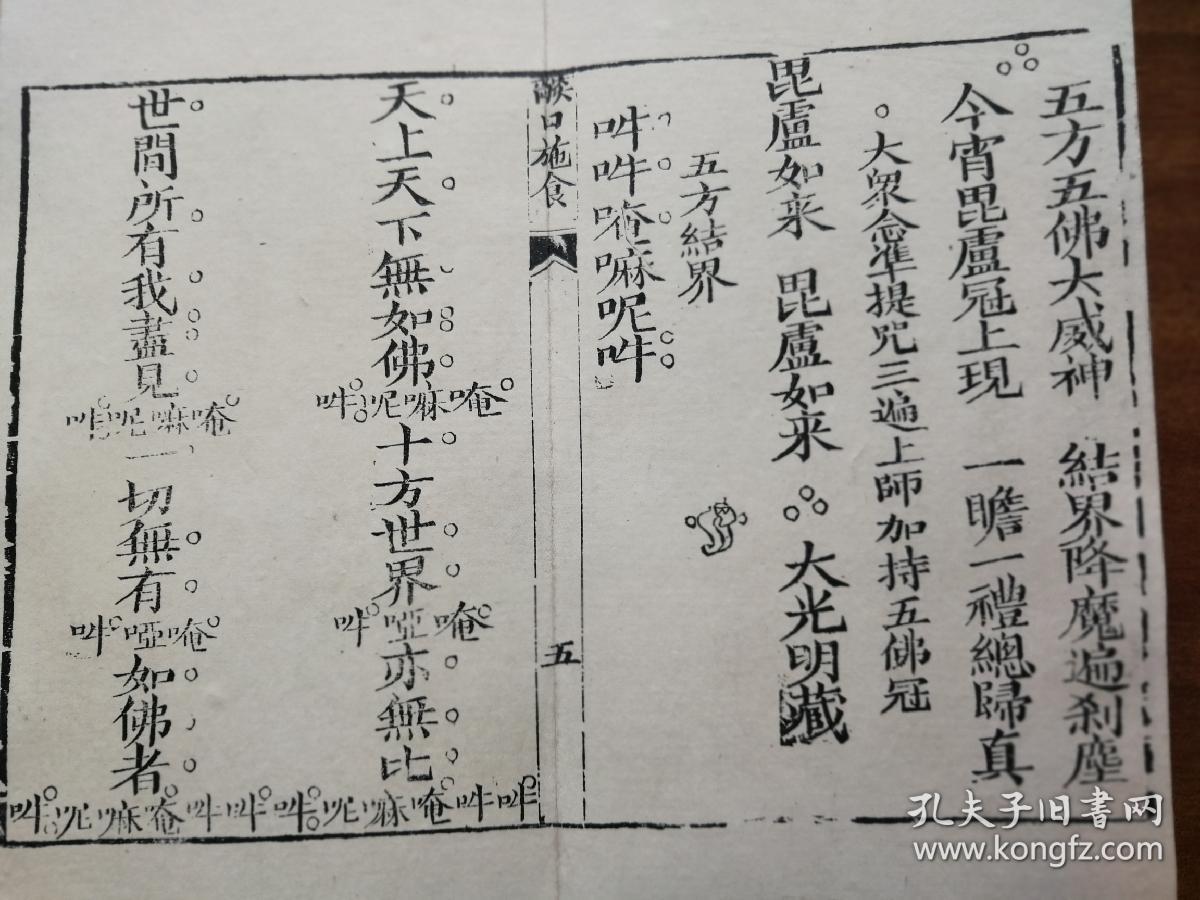 五方五佛大威神 結界降魔遍剎塵
今宵毘盧冠上現 一瞻一禮總歸真
大衆念準提咒三遍上師加持五佛冠
毘盧如来 毘盧如来 大光明藏
五方結界
吽吽唵嘛呢吽
燄口施食 五
天上天下無如佛唵嘛呢吽十方世界唵啞吽亦無比吽吽唵嘛呢吽
世間所有我盡見唵嘛呢吽一切無有唵啞吽如佛者吽吽唵嘛呢吽
孔夫子旧书网
www.kongfz.com